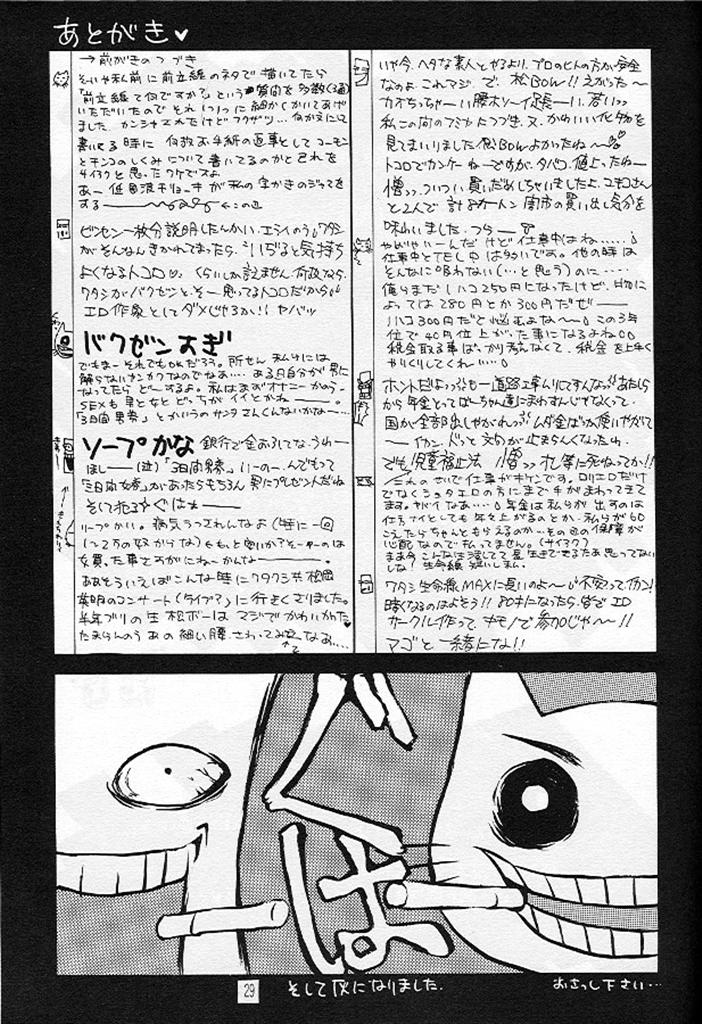 あとがき♥
→前がきのつづき
そーいや私前に前立線のネタで描いてたら
「前立線て何ですか?」という質問を多数(3通)
いただいたので
ました。
書いてる時に 何故お手紙の返事としてコーモン
とチンコのしくみについて書いてるのかと己れを
サイコーと思ったワケですよ
する ←この辺
ビンセン一枚分説明したんかい、エライのうワタシ
がそんなんきかれてまったら、「いぢると気持ち
よくなるトコロ♡」くらいしか言えません。何故なら、
ワタシがバクゼンとそー思ってるトコロだから
エロ作家としてダメじゃろか!! ヤバッ
バクゼンすぎ
でもまーそれでもOKだろう。所せん私らには
解らないカンカクなのでなあ…ある日自分が男に
なってたらどーするよ。私はまずオナニーかのう。
SEXも男と女とどっちがイイとかね――。
「3日間男券」とかいうのサンタさんくんないかな――…
ソープかな 銀行で金おろしてな。うわ―
ほしー(泣)「3日間男券」いーのー。んでもって
「3日間女券」があったらもちろん男にプレゼントだね
そして犯るぐはぁ―
ソープかい。病気うつされんなよ(特に一回
女買った事さすがにねーかんな――。
ああそういえばこんな時にワタクシ共松岡
英明のコンサート(タイプ?)に行ってくさりました。
半年ブリの生松ボーはマジでかわいかった♥
たまらんのうあの細い腰。さわってみてーなあ…
いや今、ヘタな素人とやるより、プロのヒトの方が安全
なのよ。これマジ で、松BOW!! えがった〜
カオちっちゃーい腰ホソーイ足長ーい、若いッ
私この前のフミヤにつづき、又、かわいい化け物を
見てまいりました 松BOWよかったね〜
トコロでカンケーねーですが、タバコ、値上ったねー
憎ッ、ついつい買いだめしちゃいましたよ、ユキコさん
と2人で 計8カートン 闇市の買い出し気分を
味わいました。つら―
やばいやーいんだけど仕事中はね……
仕事中とTEL中は多いですよ。他の時は
そんなに吸わない(…と思う)のに……
俺らまだ1ハコ250円になったけど、日物に
よっては280円とか300円だぜ―
1ハコ300円だと悩むよな〜 この3年
位で40円位上がった事になるよね
税金取る事ばっかり考えなくて、税金を上手く
やりくりしてくれい……
ホントだよッ も一道路工事んりにすんなッ あたらら
から年金とってばーちゃん達にまわすんじゃなくって
国が全部出しやがれッ ムダ金ばっか使いやがて
―イカン、ドッと文句が止まらんくなったわ。
でも児童福祉法 憎ッ オレ等に死ねってか!!
これのせいで仕事がキケンです。ロリエロだけ
でなくショタエロの方にまで手がまわってきて
ます。ヤバイなあ… 年金は私らが 出すのは
仕方ナイとしても年々上がるのとか、私らが60
こえたらちゃんともらえるのか…その日の保障が
心配なので払ってません。(サイアク?)
まあ今こんな生活してて長生きできるたあ思ってない
しな♪生命線短いしみん。
ワタシ生命線MAXに長いのよ〜 不安ッてイカン!
暗くなるのはよそう!! 80才になったら、皆でエロ
サークル作って キモノで参加じゃ〜!!
マゴと 一緒にな!!
ぐはっ
29
そして灰になりました。
おさっし下さい…